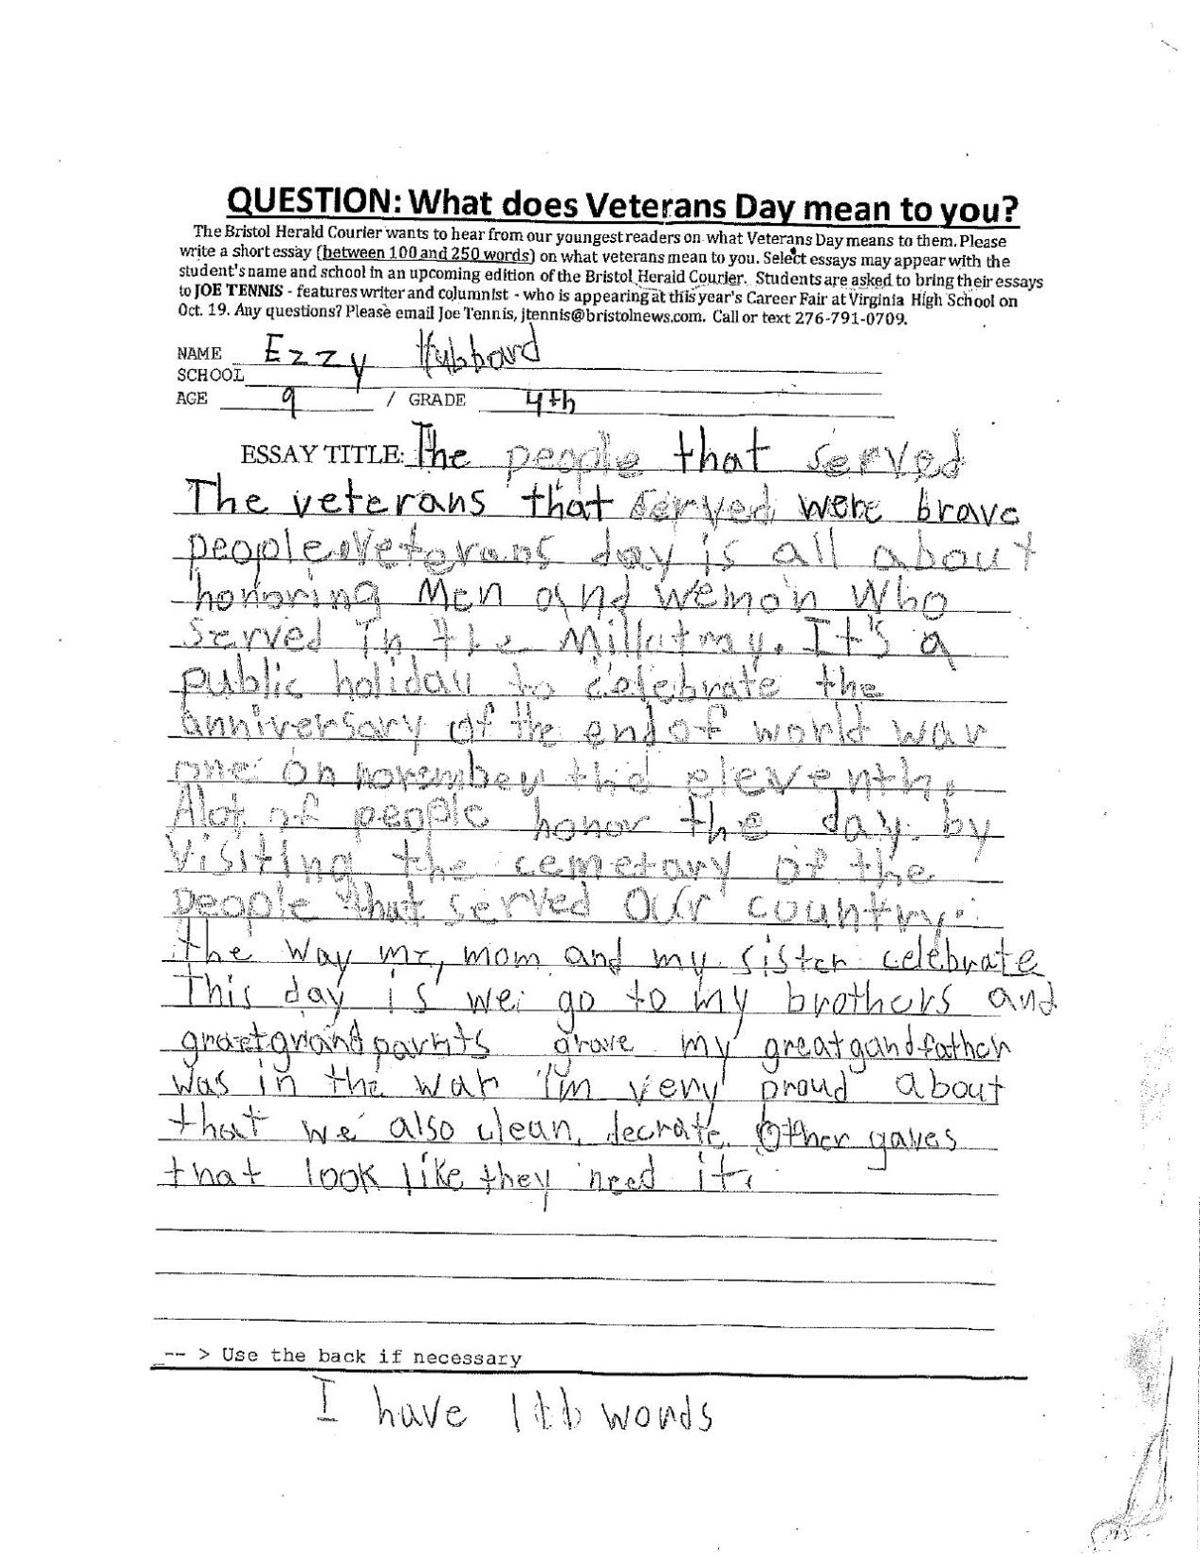 QUESTION: What does Veterans Day mean to you?
The Bristol Herald Courier wants to hear from our youngest readers on what Veterans Day means to them. Please
write a short essay (between 100 and 250 words) on what veterans mean to you. Select essays may appear with the
student's name and school in an upcoming edition of the Bristol Herald Courier. Students are asked to bring their essays
to JOE TENNIS - features writer and columnist - who is appearing at this year's Career Fair at Virginia High School on
Oct. 19. Any questions? Please email Joe Tennis, jtennis@bristolnews.com. Call or text 276-791-0709.
NAME Ezzy Hubbard
SCHOOL
AGE 9 / GRADE 4th
ESSAY TITLE: The people that served
The veterans that served were brave
people. Veterans day is all about
honoring Men and wemon who
served in the Millatray. It's a
public holiday to celebrate the
anniversary of the end of world war
one on november the eleventh.
Alot of people honor the day by
visiting the cemetary of the
people that served our country.
the way me, mom and my sister celebrate
This day is we go to my brothers and
graetgrandparnts grave my greatgandfather
was in the war I'm very proud about
that we also clean, decrate other gaves
that look like they need it.
-- > Use the back if necessary
I have words